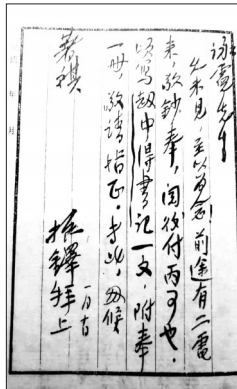 詠霓先生：
久未見，至以为念！前途有二電
来，敬鈔奉，閲後付丙可也。
頃寫劫中得書記一文，附奉
一册，敬請指正。專此，敬候
著祺
振鐸拜上
一月